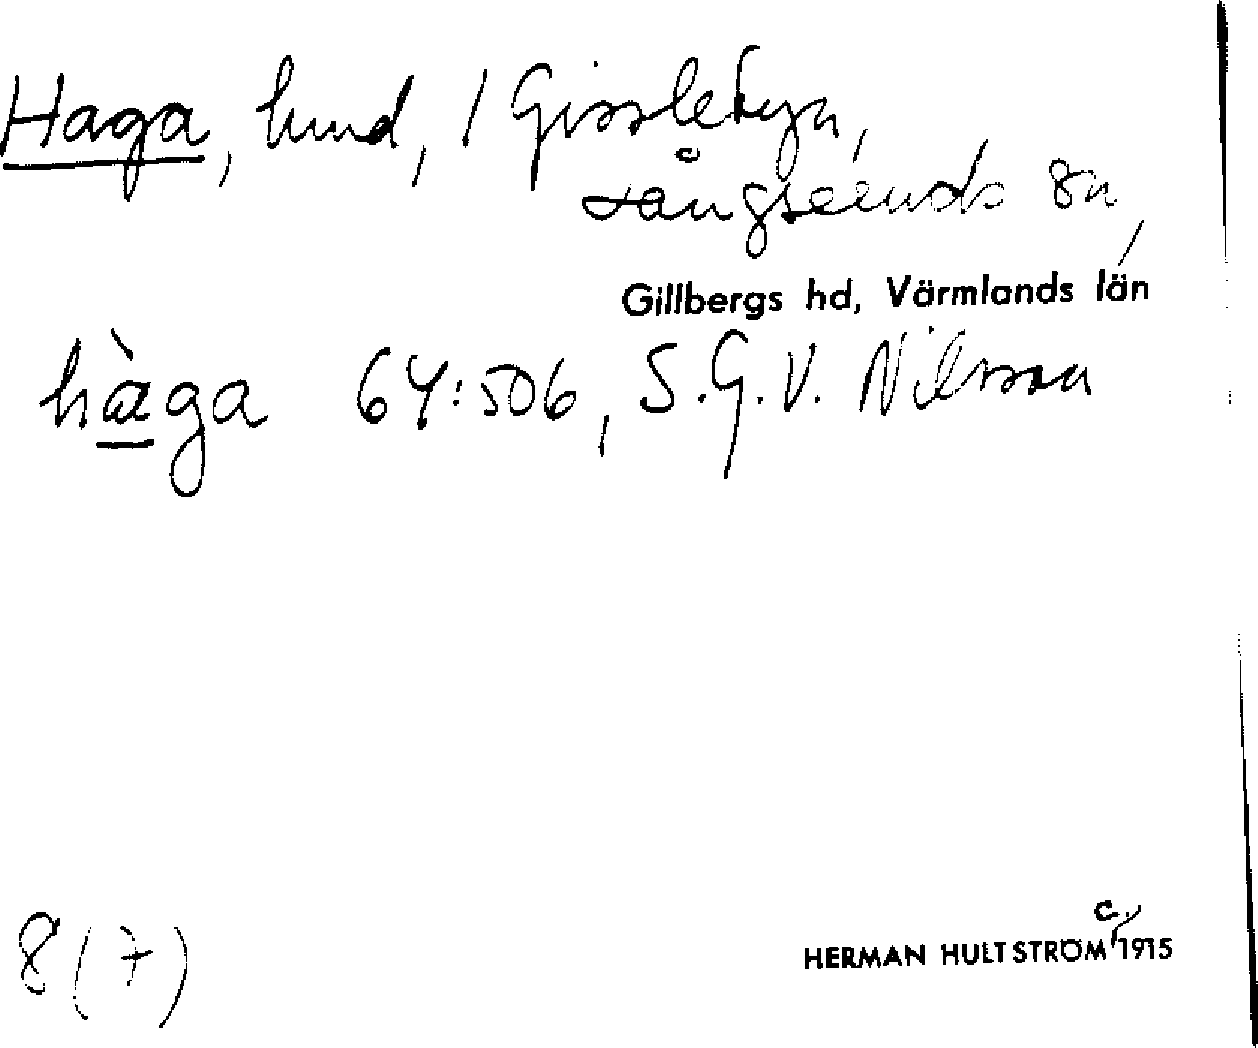 Haga, lund, / Gisslebyn,
Långseruds sn,
Gillbergs hd, Värmlands län
hàga 64:506, S.G.V. Nilsson
8 (7)
c.
HERMAN HULTSTRÖM 1915